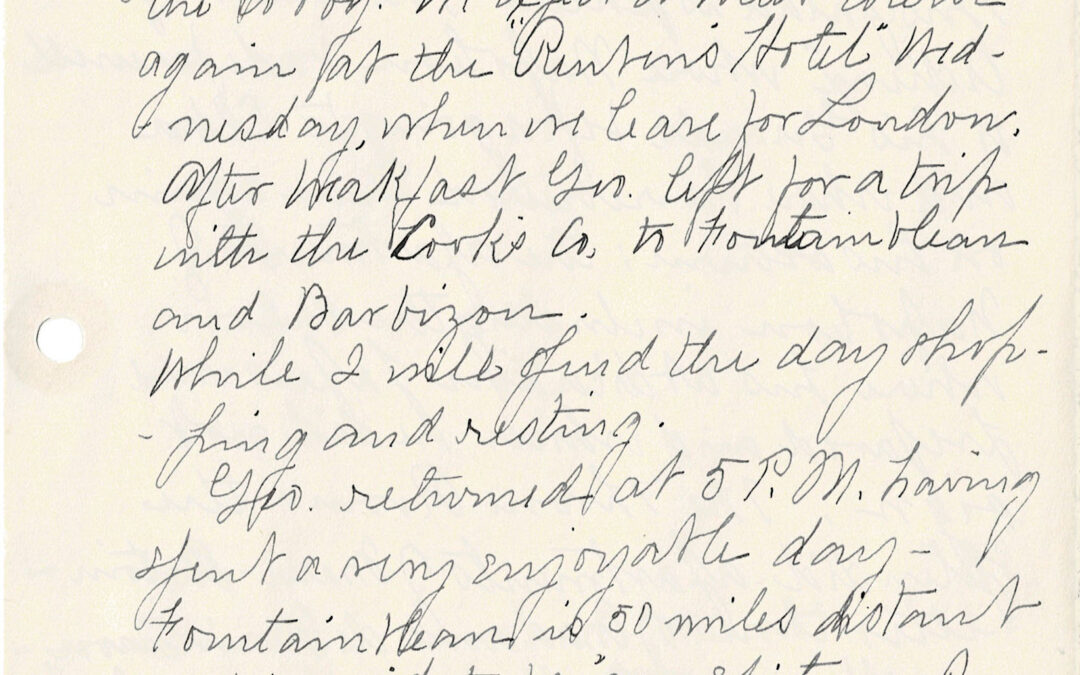 again at the "Rubens Hotel" Wed-
- nesday, when we leave for London.
After breakfast Geo. left for a trip
with the Cook's Co. to Fountainblean
and Barbizon.
While I will spend the day shop-
- ping and resting.
Geo. returned at 5 P.M. having
spent a very enjoyable day -
Fountainblean is 50 miles distant